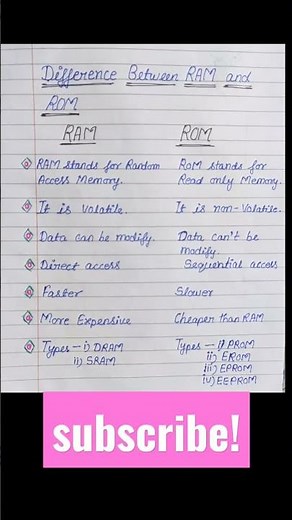 Difference Between RAM and
ROM
RAM ROM
RAM stands for Random ROM stands for
Access Memory. Read only Memory.
It is Volatile. It is non-Volatile.
Data can be modify. Data can't be
modify.
Direct access Sequential access
Faster Slower
More Expensive Cheaper than RAM
Types - i) DRAM Types - i) PROM
ii) SRAM ii) EROM
iii) EPROM
iv) EEPROM
subscribe!